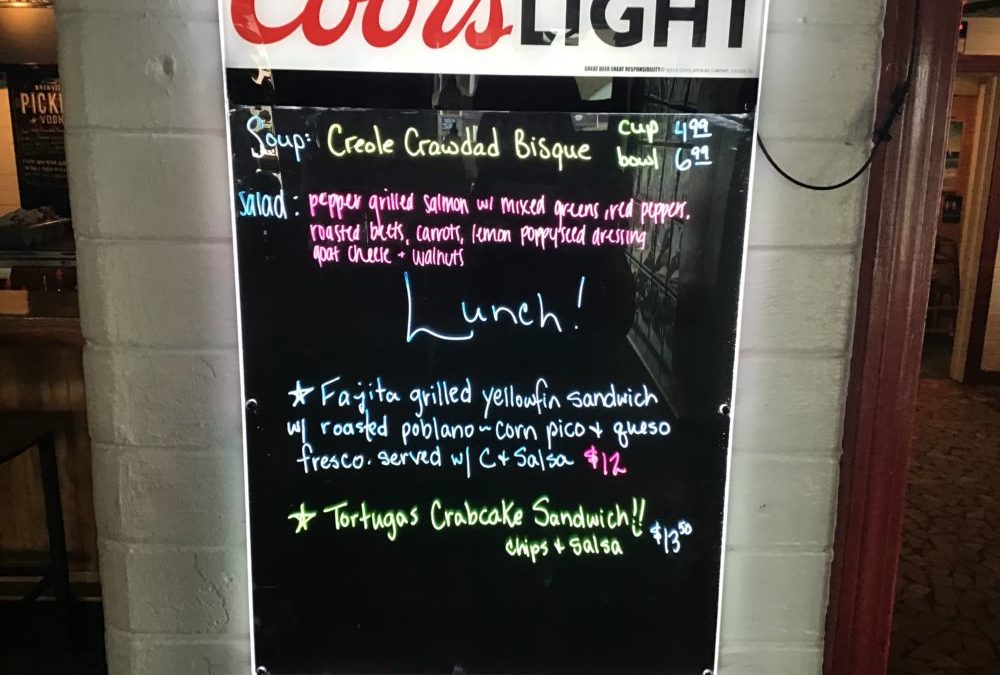 Coors LIGHT
GREAT BEER GREAT RESPONSIBILITY
PICK
VODKA
Soup: Creole Crawdad Bisque cup 4.99
bowl 6.99
Salad: pepper grilled salmon w/ mixed greens, red pepper,
roasted beets, carrots, lemon poppyseed dressing
goat cheese + walnuts
Lunch!
★ Fajita grilled yellowfin sandwich
w/ roasted poblano~corn pico + queso
fresco. served w/ C+Salsa $12
★ Tortugas Crabcake Sandwich!!
chips + salsa $13.50